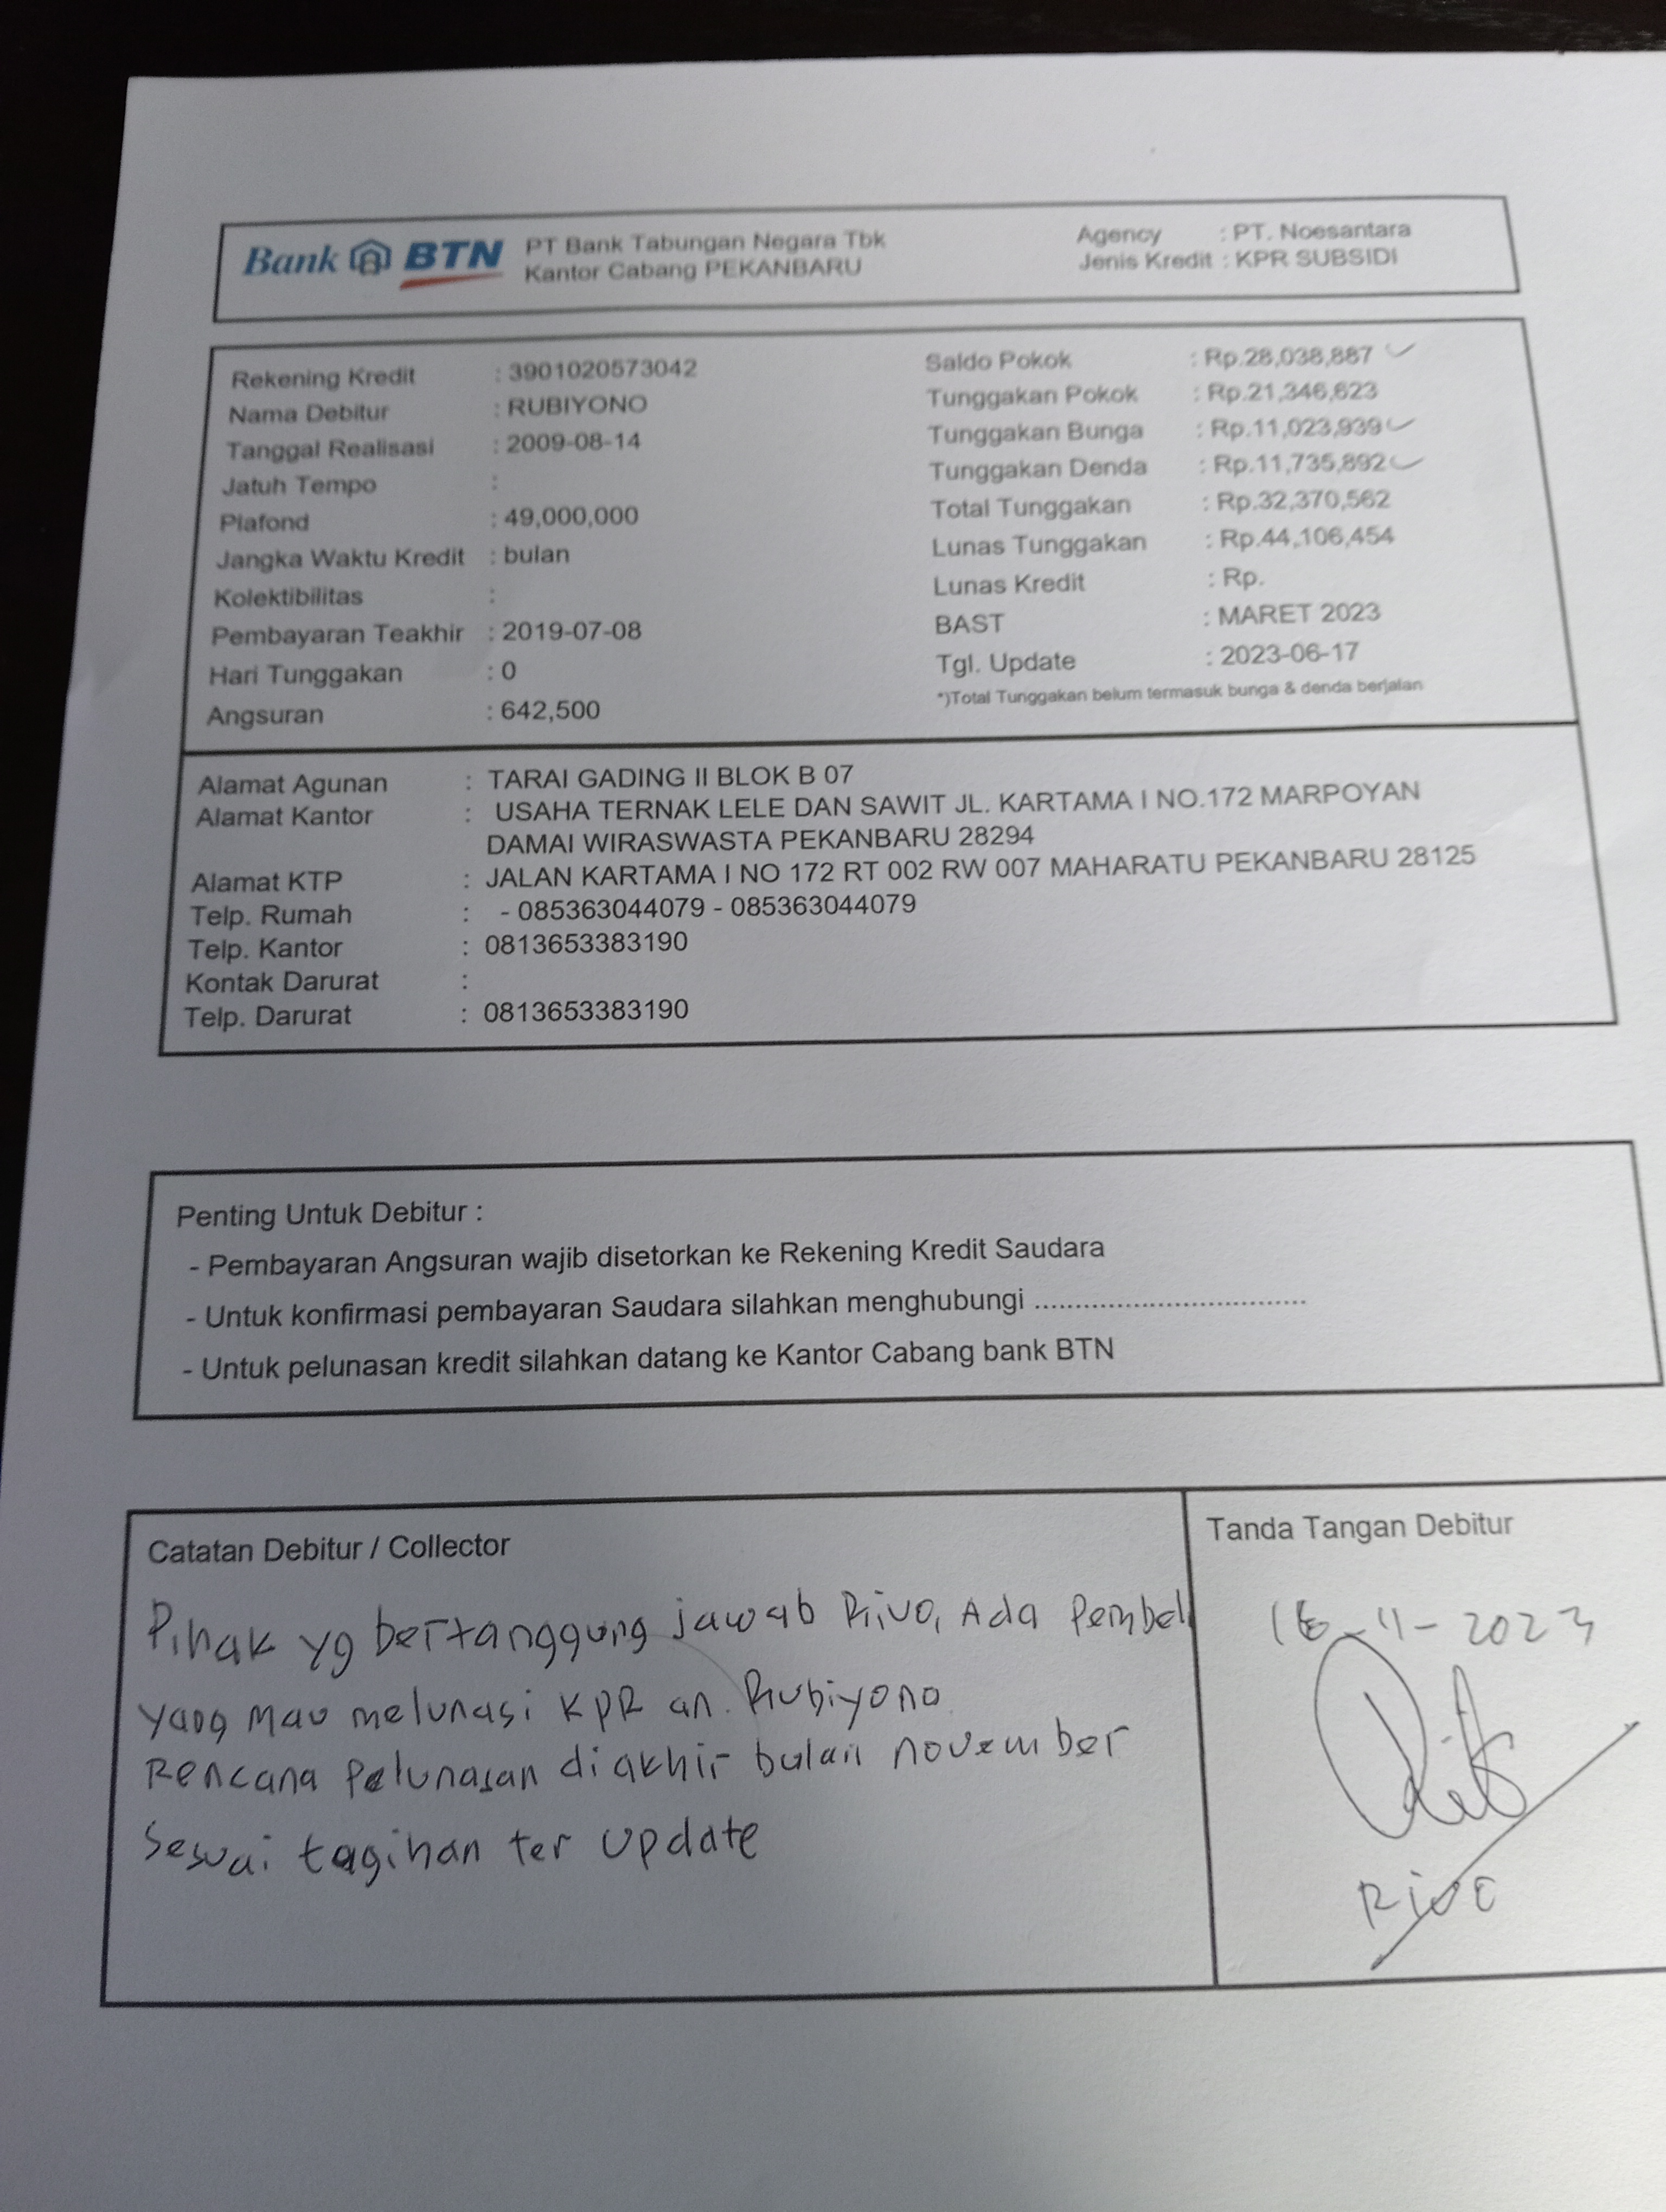 Bank BTN PT Bank Tabungan Negara Tbk
Kantor Cabang PEKANBARU
Agency : PT. Noesantara
Jenis Kredit : KPR SUBSIDI
Rekening Kredit : 3901020573042
Nama Debitur : RUBIYONO
Tanggal Realisasi : 2009-08-14
Jatuh Tempo :
Plafond : 49,000,000
Jangka Waktu Kredit : bulan
Kolektibilitas :
Pembayaran Teakhir : 2019-07-08
Hari Tunggakan : 0
Angsuran : 642,500
Saldo Pokok : Rp.28,038,887
Tunggakan Pokok : Rp.21,346,623
Tunggakan Bunga : Rp.11,023,939
Tunggakan Denda : Rp.11,735,892
Total Tunggakan : Rp.32,370,562
Lunas Tunggakan : Rp.44,106,454
Lunas Kredit : Rp.
BAST : MARET 2023
Tgl. Update : 2023-06-17
*)Total Tunggakan belum termasuk bunga & denda berjalan
Alamat Agunan : TARAI GADING II BLOK B 07
Alamat Kantor : USAHA TERNAK LELE DAN SAWIT JL. KARTAMA I NO.172 MARPOYAN
DAMAI WIRASWASTA PEKANBARU 28294
Alamat KTP : JALAN KARTAMA I NO 172 RT 002 RW 007 MAHARATU PEKANBARU 28125
Telp. Rumah : - 085363044079 - 085363044079
Telp. Kantor : 0813653383190
Kontak Darurat :
Telp. Darurat : 0813653383190
Penting Untuk Debitur :
- Pembayaran Angsuran wajib disetorkan ke Rekening Kredit Saudara
- Untuk konfirmasi pembayaran Saudara silahkan menghubungi .................................
- Untuk pelunasan kredit silahkan datang ke Kantor Cabang bank BTN
Catatan Debitur / Collector
Pihak yg bertanggung jawab Rivo, Ada Pembeli
yang mau melunasi KPR an. Rubiyono
Rencana Pelunasan diakhir bulan november
Sesuai tagihan ter update
Tanda Tangan Debitur
-11-2023
Rivo